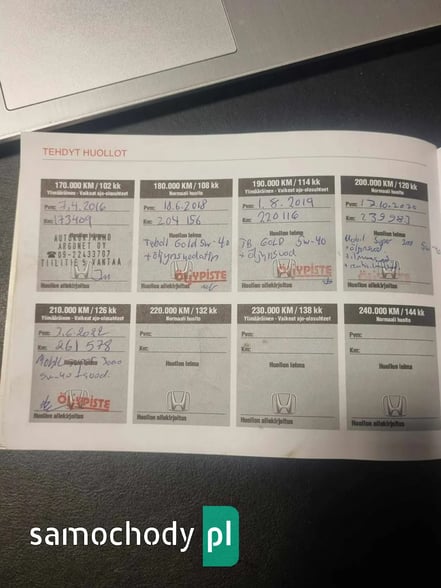 TEHDYT HUOLLOT
170.000 KM / 102 kk
Ylimääräinen - Vaikeat ajo-olosuhteet
Pvm: 7.4.2016
Km: 173409
Huollon leima
AUTOKORJAAMO
ARGONET OY
☎09-22433707
TIILITIE 5 VANTAA
Huollon allekirjoitus
180.000 KM / 108 kk
Normaali huolto
Pvm: 18.6.2018
Km: 204 156
Huollon leima
Gold 5w-40
ÖLJYPISTE
Huollon allekirjoitus
190.000 KM / 114 kk
Ylimääräinen - Vaikeat ajo-olosuhteet
Pvm: 1.8.2019
Km: 220116
Huollon leima
GOLD 5w-40
ÖLJYPISTE
Huollon allekirjoitus
200.000 KM / 120 kk
Normaali huolto
Pvm:
Km:
Huollon leima
Huollon allekirjoitus
210.000 KM / 126 kk
Ylimääräinen - Vaikeat ajo-olosuhteet
Pvm:
Km: 261 578
Huollon leima
ÖLJYPISTE
Huollon allekirjoitus
220.000 KM / 132 kk
Normaali huolto
Pvm:
Km:
Huollon leima
Huollon allekirjoitus
230.000 KM / 138 kk
Ylimääräinen - Vaikeat ajo-olosuhteet
Pvm:
Km:
Huollon leima
Huollon allekirjoitus
240.000 KM / 144 kk
Normaali huolto
Pvm:
Km:
Huollon leima
Huollon allekirjoitus
samochody pl